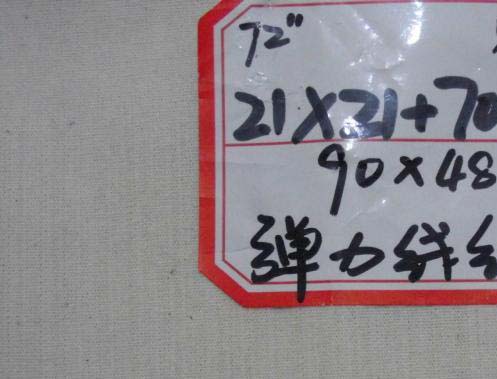 72"
21X21+70
90×48
弹力线